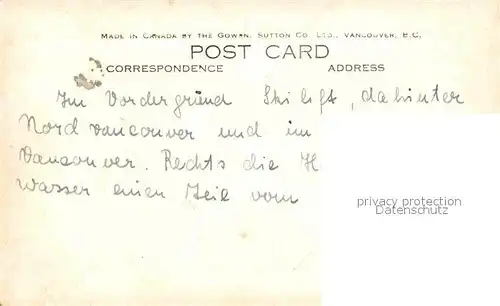 MADE IN CANADA BY THE GOWEN, SUTTON CO. LTD., VANCOUVER, B.C.
POST CARD
CORRESPONDENCE ADDRESS
Im Vordergrund Skilift, dahinter
Nordvancouver und im
Vancouver. Rechts die H
Wasser einen Teil vom
privacy protection
Datenschutz